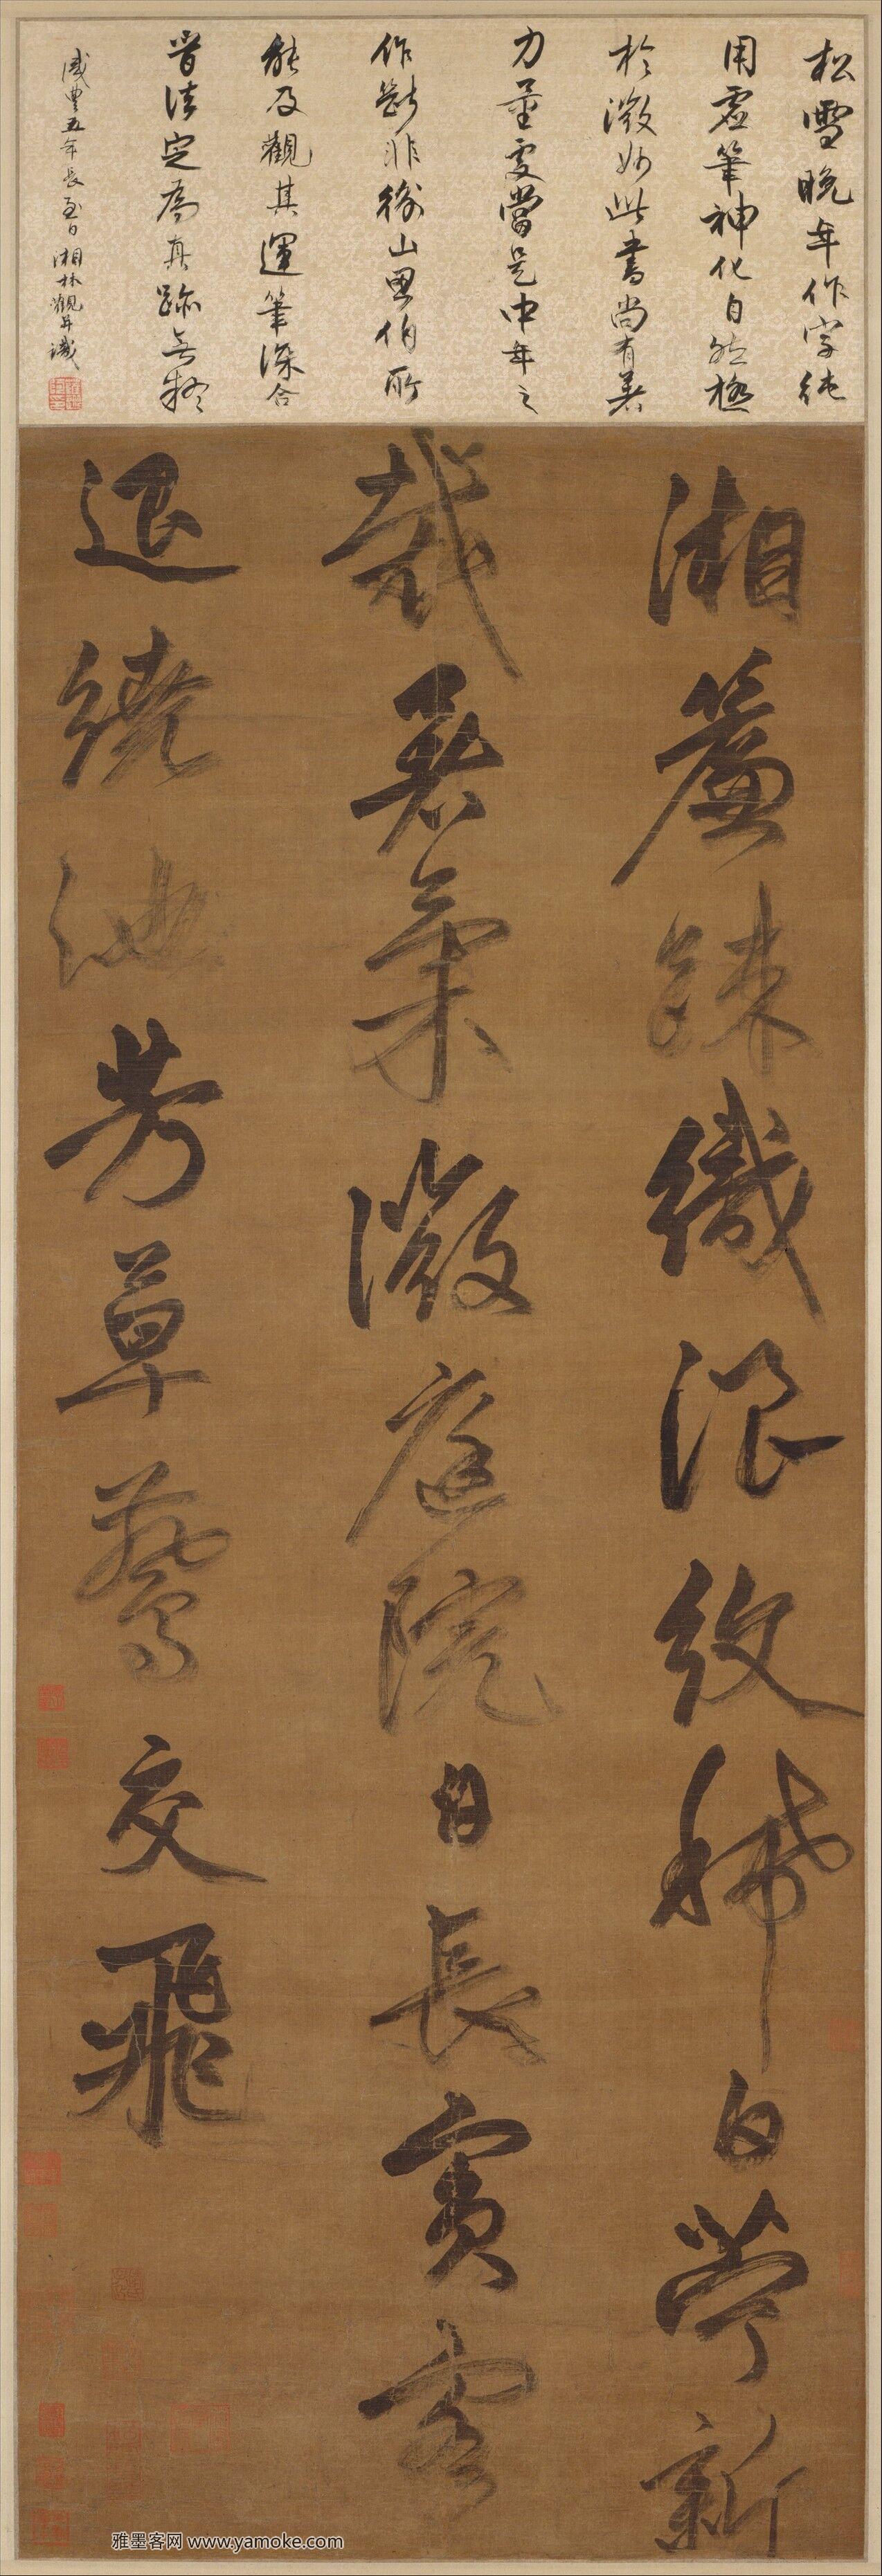 松雪晚年作字純
用虛筆神化自然極
於微妙此書尚有著
力量處當是中年之
作斷非徵山思伯所
能及觀其運筆深合
晉法定爲真跡無疑
咸豐五年長至日湘林觀并識
湘簾疎織浪紋稀白苧新
裁暑氣微庭院日長賓客
退繞池芳草燕交飛
雅墨客网 www.yamoke.com